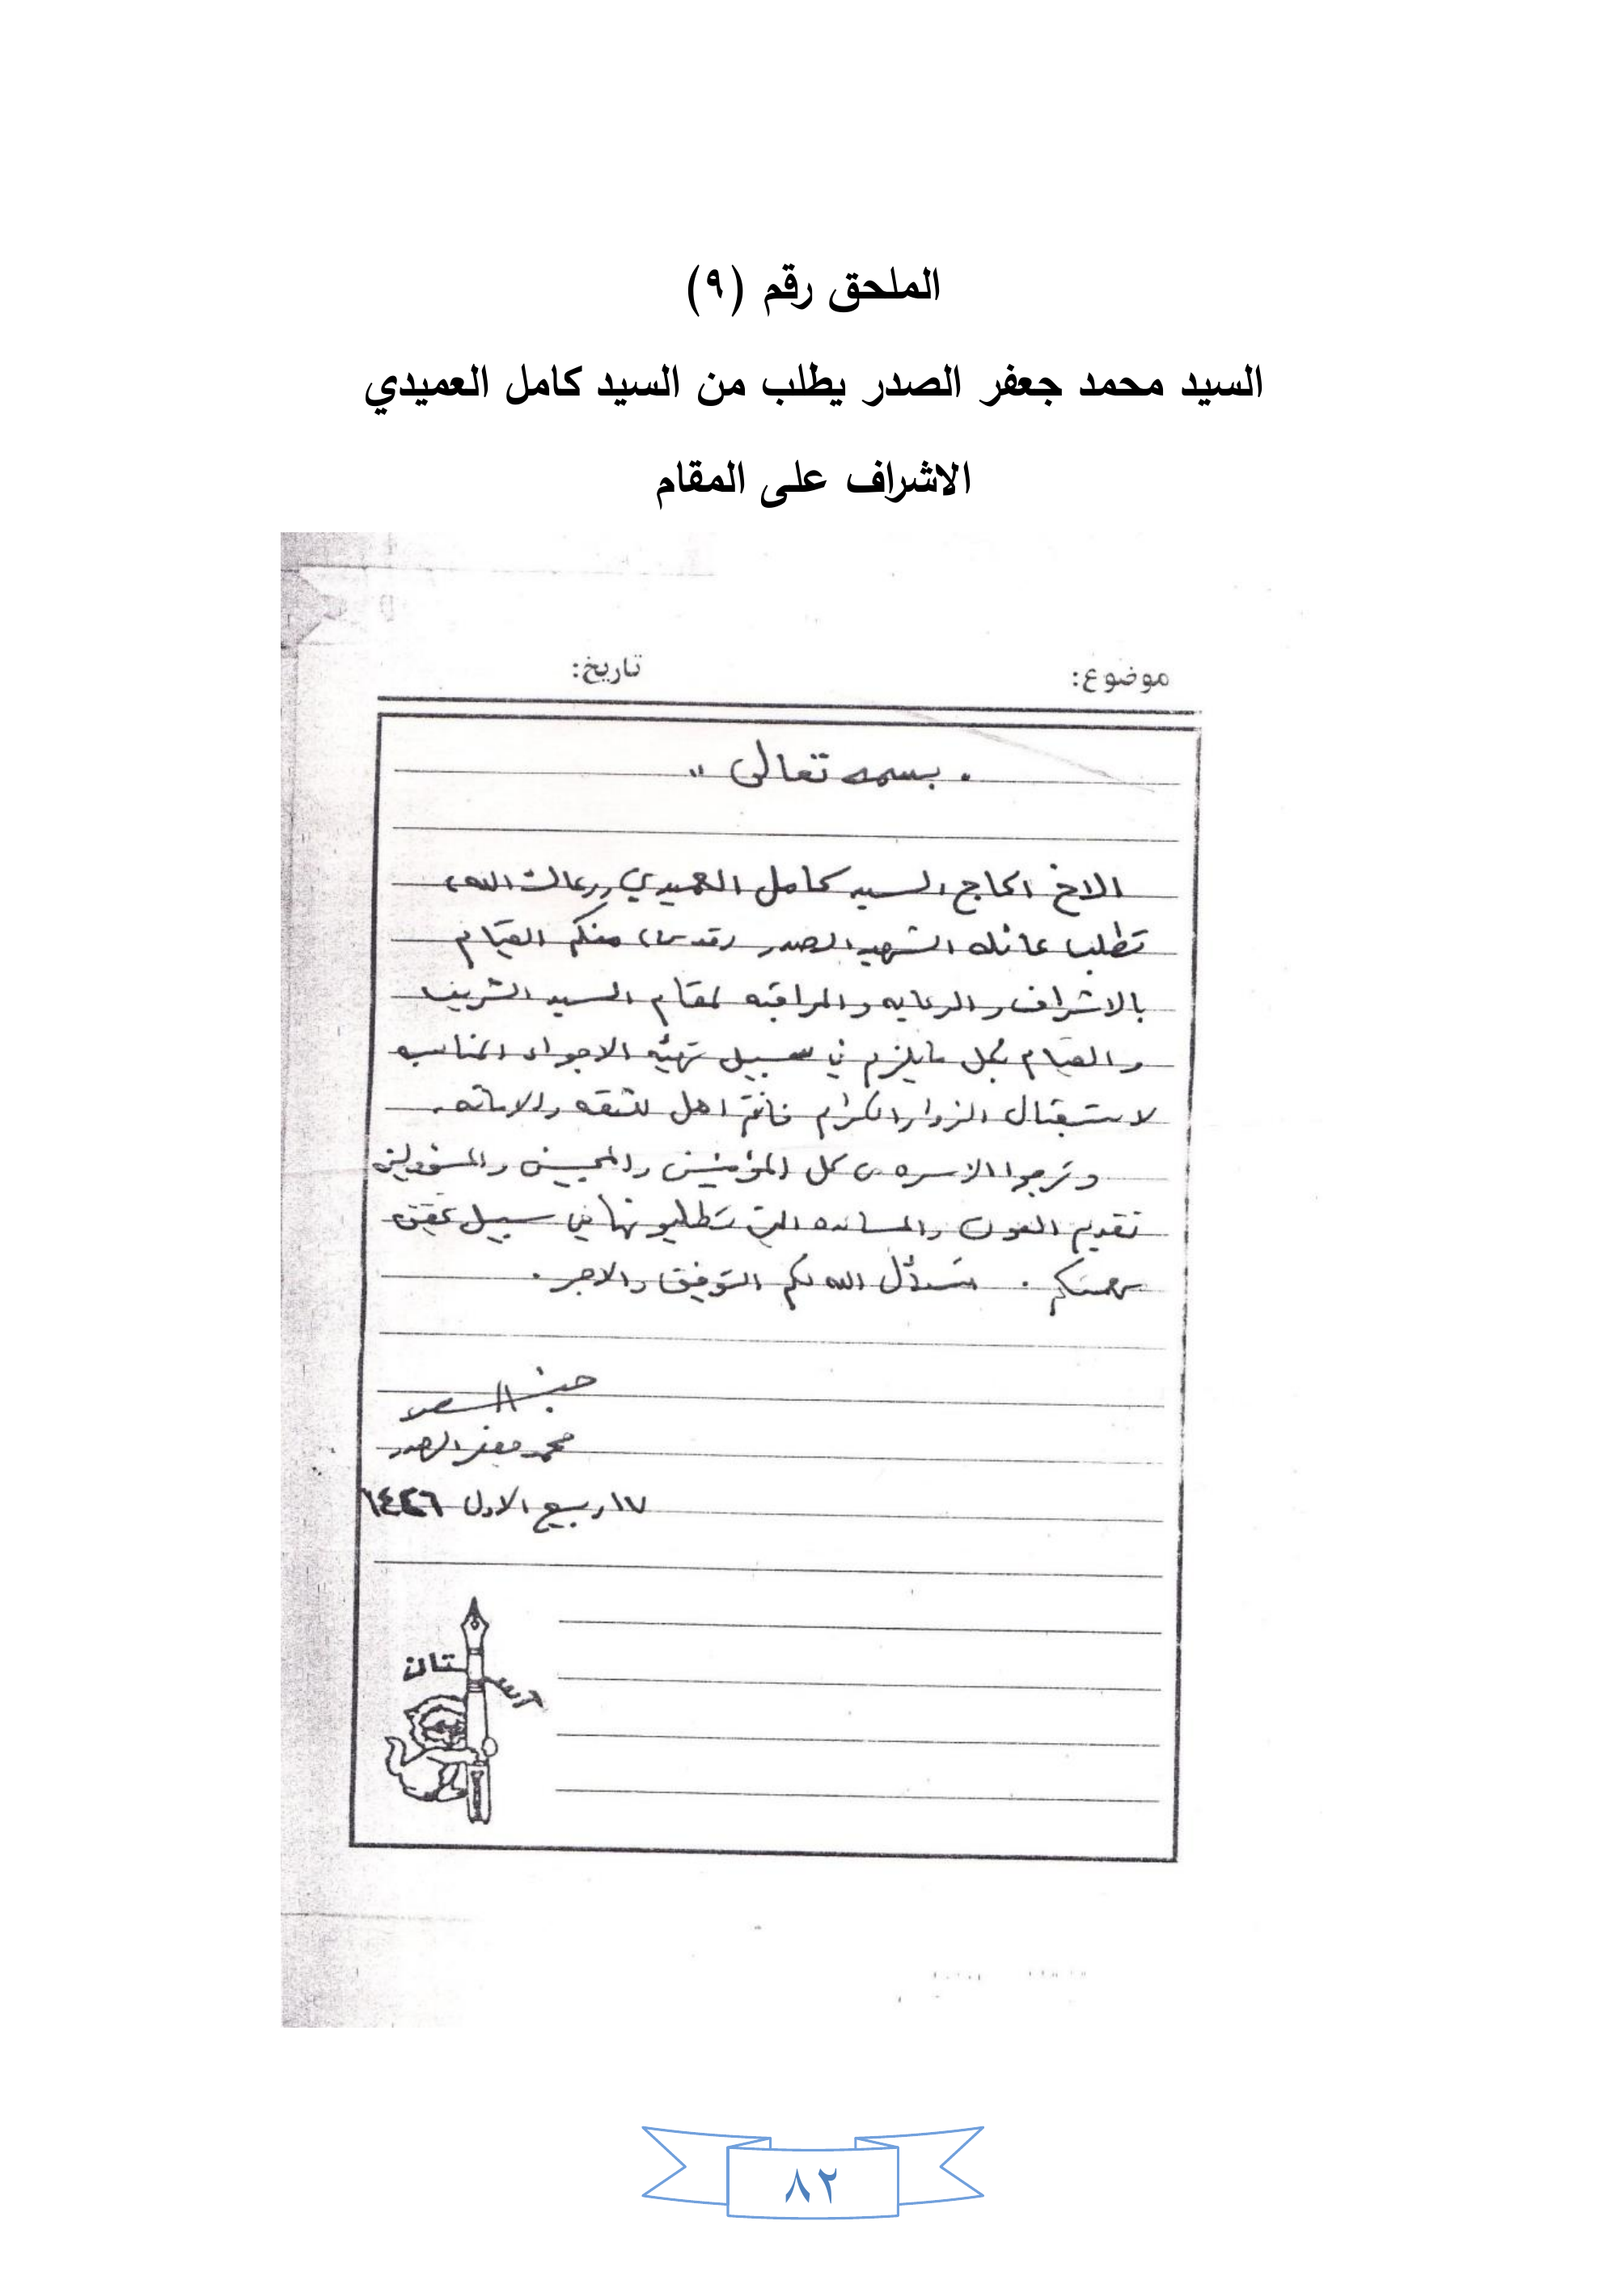 الملحق رقم (٩)
السيد محمد جعفر الصدر يطلب من السيد كامل العميدي
الاشراف على المقام
موضوع: تاريخ:
. بسمه تعالى "
الاخ الحاج السيد كامل العميدي ((رعاك الله))
تطلب عائله الشهيد الصدر (قدس) منكم القيام
بالاشراف والرعايه والمراقبه لمقام السيد الشريف
والقيام بكل مايلزم في سبيل تهيئه الاجواء المناسبه
لاستقبال الزوار الكرام فانتم اهل للثقه والامانه.
وترجوا الاسره من كل المؤمنين والمحبين والمسؤولين
تقديم العون والمسانده التي تتطلبونها في سبيل تحقيق
مهمتكم . نسأل الله لكم التوفيق والاجر .
محمد جعفر الصدر
١٧ ربيع الاول ١٤٢٦
٨٢